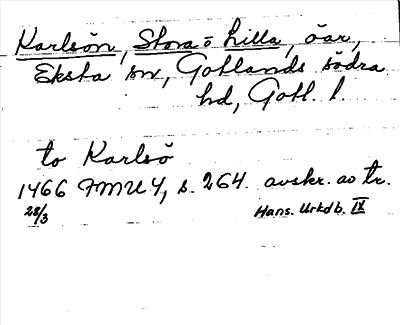 Karlsön, Stora o Lilla, öar,
Eksta sn, Gotlands södra
hd, Gotl. l.
to Karlsö
1466 FMU 4, s. 264. avskr. av tr.
28/3 Hans. Urkdb. IX